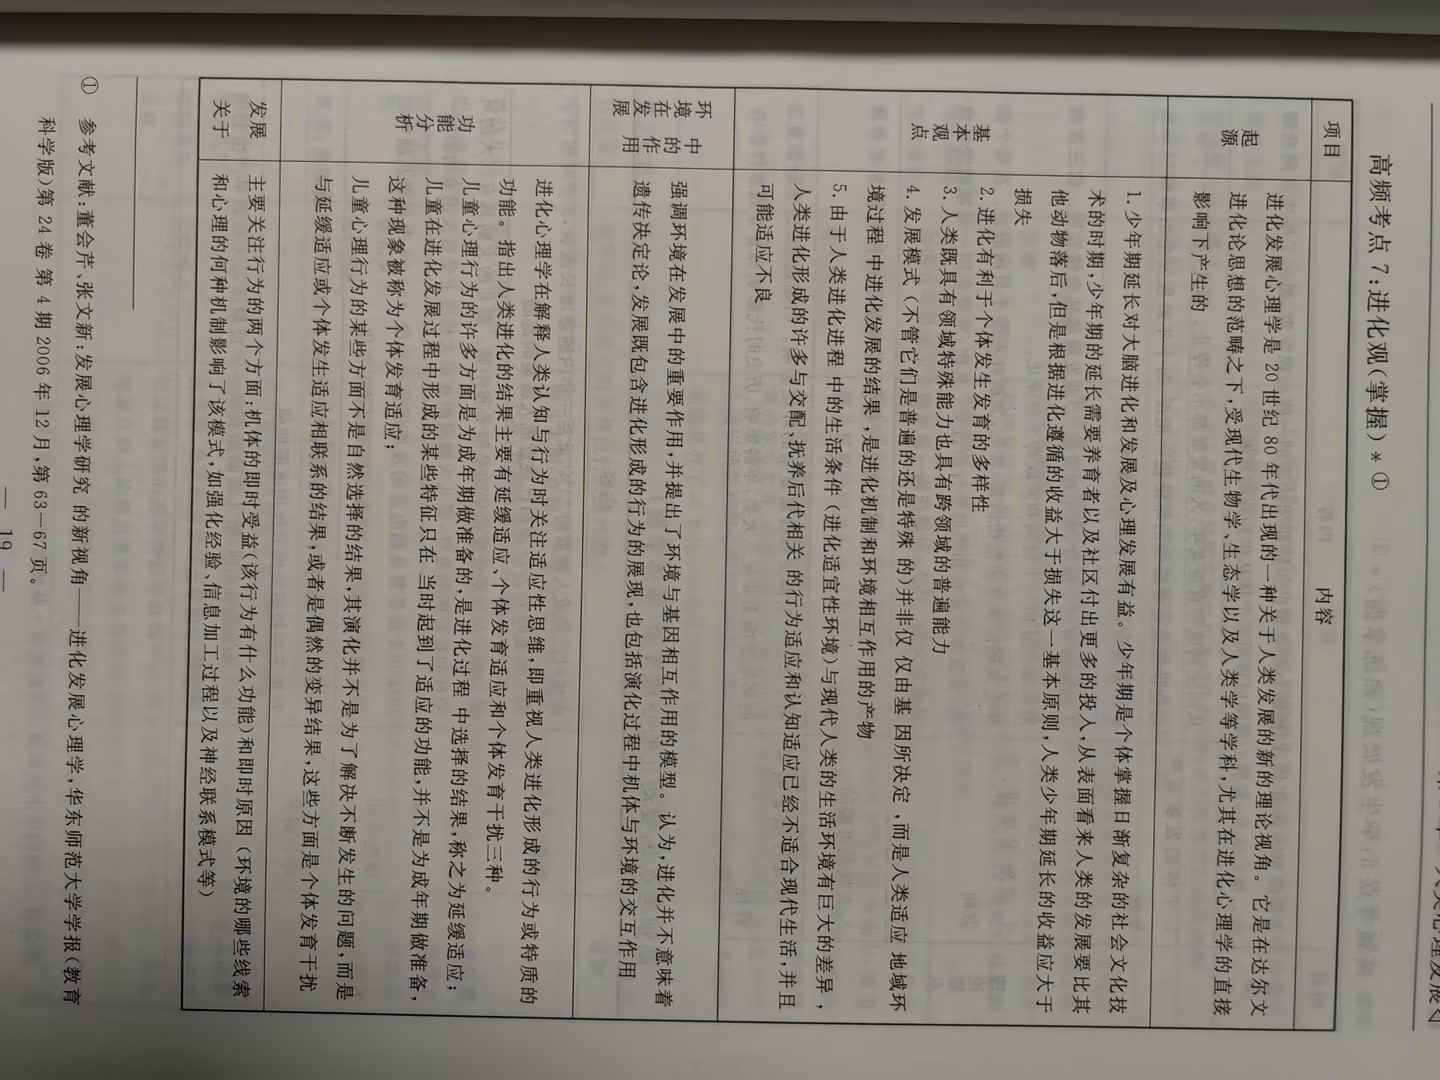 高频考点7:进化观(掌握)*①
项目
内容
起源
进化发展心理学是20世纪80年代出现的一种关于人类发展的新的理论视角。它是在达尔文
进化论思想的范畴之下,受现代生物学、生态学以及人类学等学科,尤其在进化心理学的直接
影响下产生的
基本观点
1. 少年期延长对大脑进化和发展及心理发展有益。少年期是个体掌握日渐复杂的社会文化技
术的时期,少年期的延长需要养育者以及社区付出更多的投入,从表面看来人类的发展要比其
他动物落后,但是根据进化遵循的收益大于损失这一基本原则,人类少年期延长的收益应大于
损失
2. 进化有利于个体发生发育的多样性
3. 人类既具有领域特殊能力也具有跨领域的普遍能力
4. 发展模式(不管它们是普遍的还是特殊 的)并非仅 仅由基 因所决定,而是人类适应 地域环
境过程 中进化发展的结果,是进化机制和环境相互作用的产物
5. 由于人类进化进程 中的生活条件(进化适宜性环境)与现代人类的生活环境有巨大的差异,
人类进化形成的许多与交配、抚养后代相关 的行为适应和认知适应已经不适合现代生活,并且
可能适应不良
环境在发展
中的作用
强调环境在发展中的重要作用,并提出了环境与基因相互作用的模型。认为,进化并不意味着
遗传决定论,发展既包含进化形成的行为的展现,也包括演化过程中机体与环境的交互作用
功能分析
进化心理学在解释人类认知与行为时关注适应性思维,即重视人类进化形成的行为或特质的
功能。指出人类进化的结果主要有延缓适应、个体发育适应和个体发育干扰三种。
儿童心理行为的许多方面是为成年期做准备的,是进化过程 中选择的结果,称之为延缓适应;
儿童在进化发展过程中形成的某些特征只在 当时起到了适应的功能,并不是为成年期做准备,
这种现象被称为个体发育适应;
儿童心理行为的某些方面不是自然选择的结果,其演化并不是为了解决不断发生的问题,而是
与延缓适应或个体发生适应相联系的结果,或者是偶然的变异结果,这些方面是个体发育干扰
发展
关于
主要关注行为的两个方面:机体的即时受益(该行为有什么功能)和即时原因(环境的哪些线索
和心理的何种机制影响了该模式,如强化经验、信息加工过程以及神经联系模式等)
① 参考文献:董会芹、张文新:发展心理学研究 的新视角——进化发展心理学,华东师范大学学报(教育
科学版)第24卷 第4期2006年12月,第63—67页。
— 19 —